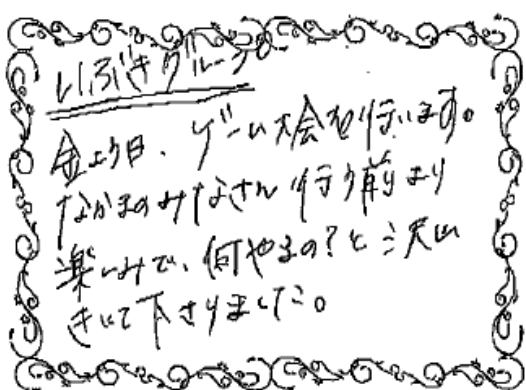 いぶきグループ
金曜日、ゲーム大会を行います。
なかまのみなさん行う前より
楽しみで、何やるの?と沢山
きいて下さりました。